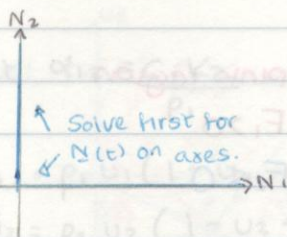 N₂
Solve first for
N(t) on axes.
N₁